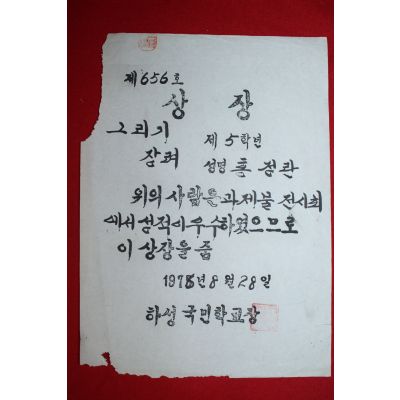 제656호
상장
그리기
제5학년
장려
성명 홍정완
위의 사람은 과제물 전시회
에서 성적이 우수하였으므로
이 상장을 줌
1978년 8월 28일
하성국민학교장